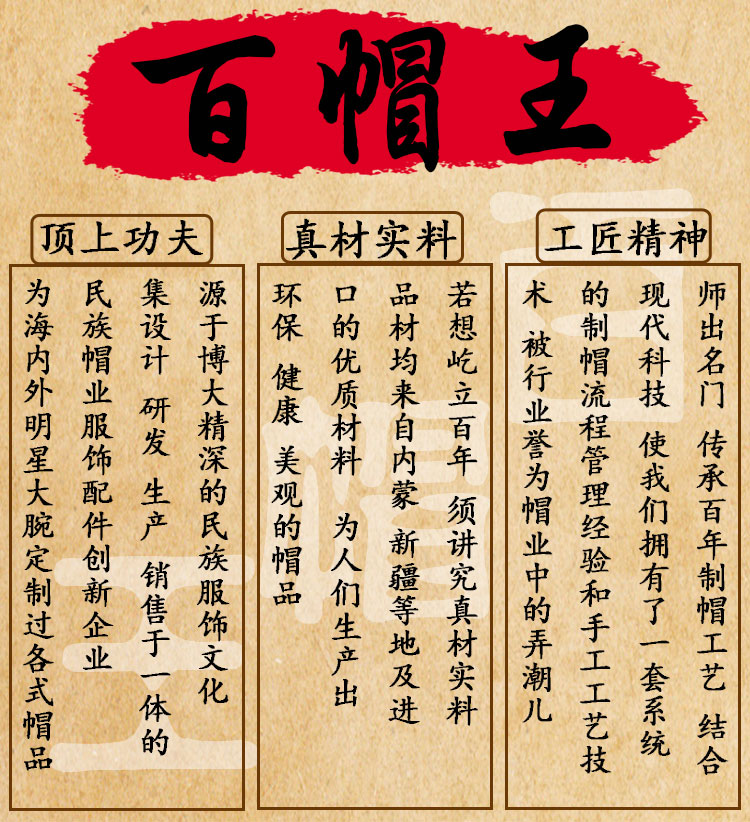 百帽王
工匠精神
师出名门 传承百年制帽工艺 结合
现代科技 使我们拥有了一套系统
的制帽流程管理经验和手工工艺技
术 被行业誉为帽业中的弄潮儿
真材实料
若想屹立百年 须讲究真材实料
品材均来自内蒙 新疆等地及进
口的优质材料 为人们生产出
环保 健康 美观的帽品
顶上功夫
源于博大精深的民族服饰文化
集设计 研发 生产 销售于一体的
民族帽业服饰配件创新企业
为海内外明星大腕定制过各式帽品
百
帽
王